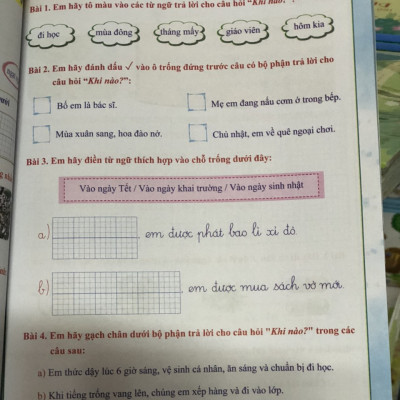 Bài 1. Em hãy tô màu vào các từ ngữ trả lời cho câu hỏi "Khi nào?"
đi học mùa đông tháng mấy giáo viên hôm kia
Bài 2. Em hãy đánh dấu ✓ vào ô trống đứng trước câu có bộ phận trả lời cho
câu hỏi "Khi nào?":
Bố em là bác sĩ. Mẹ em đang nấu cơm ở trong bếp.
Mùa xuân sang, hoa đào nở. Chủ nhật, em về quê ngoại chơi.
Bài 3. Em hãy điền từ ngữ thích hợp vào chỗ trống dưới đây:
Vào ngày Tết / Vào ngày khai trường / Vào ngày sinh nhật
a) em được phát bao lì xì đỏ.
b) em được mua sách vở mới.
Bài 4. Em hãy gạch chân dưới bộ phận trả lời cho câu hỏi "Khi nào?" trong các
câu sau:
a) Em thức dậy lúc 6 giờ sáng, vệ sinh cá nhân, ăn sáng và chuẩn bị đi học.
b) Khi tiếng trống vang lên, chúng em xếp hàng và đi vào lớp.